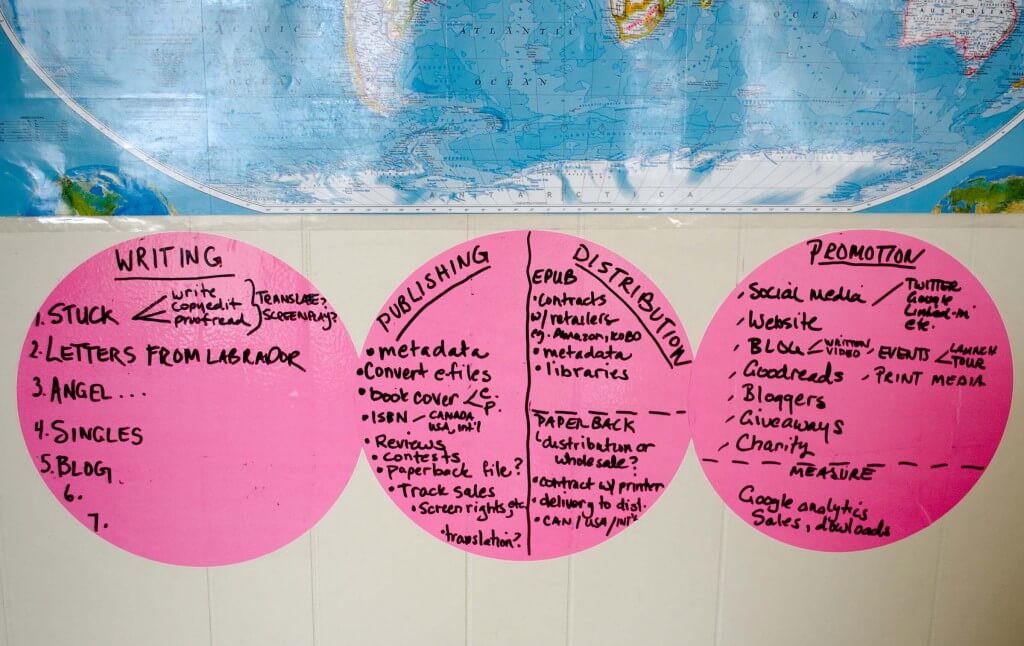 ATLANTIC
OCEAN
OCEAN
AUSTRALIA
ANTARCTICA
WRITING
1. STUCK < write
copyedit
proofread } TRANSLATE?
SCREENPLAY?
2. LETTERS FROM LABRADOR
3. ANGEL...
4. SINGLES
5. BLOG
6.
7.
PUBLISHING
• metadata
• Convert efiles
• book cover < e.
p.
• ISBN / CANADA
USA, int'l
• Reviews
• contests
• paperback file?
• Track sales
• Screen rights, etc
• translation?
DISTRIBUTION
EPUB
• contracts
w/ retailers
eg. Amazon, KOBO
• metadata
• libraries
PAPERBACK
distribution or
wholesale?
• contract w/ printer
• delivery to dist.
• CAN / USA / INT'L
PROMOTION
Social media / TWITTER
Google
Linked-in
etc.
Website
BLOG < WRITTEN
VIDEO
EVENTS < LAUNCH
TOUR
Goodreads
PRINT MEDIA
Bloggers
Giveaways
Charity
MEASURE
Google analytics
Sales, dowloads